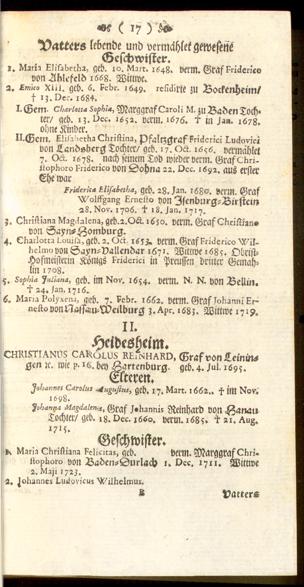 ( 17 )
Vatters lebende und vermählet gewesene
Geschwister.
1. Maria Elisabetha, geb. 10. Mart. 1648. verm. Graf Friderico
von Ahlefeld 1668. Wittwe.
2. Emico XIII. geb. 6. Febr. 1649. residirte zu Bockenheim/
† 13. Dec. 1684.
I. Gem. Charlotta Sophia, Marggraf Caroli M. zu Baden Toch-
ter/ geb. 13. Dec. 1652. verm. 1676. † in Jan. 1678.
ohne Kinder.
II. Gem. Elisabetha Christina, Pfaltzgraf Friderici Ludovici
von Landsberg Tochter/ geb. 17. Oct. 1656. vermählet
7. Oct. 1678. nach seinem Tod wieder verm. Graf Chri-
stophoro Friderico von Dohna 22. Dec. 1692. aus erster
Ehe war
Friderica Elisabetha, geb. 28. Jan. 1680. verm. Graf
Wolffgang Ernesto von Isenburg-Birstein
28. Nov. 1706. † 18. Jan. 1717.
3. Christiana Magdalena, geb. 2. Oct. 1650. verm. Graf Christiano
von Sayn-Homburg.
4. Charlotta Louisa, geb. 2. Oct. 1653. verm. Graf Friderico Wil-
helmo von Sayn-Vallendar 1671. Wittwe 1685. Obrist-
Hofmeisterin Königs Friderici in Preussen dritter Gemah-
lin 1708.
5. Sophia Juliana, geb. im Nov. 1654. verm. N. N. von Bellin.
† 24. Jan. 1716.
6. Maria Polyxena, geb. 7. Febr. 1662. verm. Graf Johanni Er-
nesto von Nassau-Weilburg 3. Apr. 1683. Wittwe 1719.
II.
Heidesheim.
CHRISTIANUS CAROLUS REINHARD, Graf von Leinin-
gen ꝛc. wie p. 16. bey Hartenburg. geb. 4. Jul. 1695.
Elteren.
Johannes Carolus Augustus, geb. 17. Mart. 1662. † im Nov.
1698.
Johanna Magdalena, Graf Johannis Reinhard von Hanau
Tochter/ geb. 18. Dec. 1660. verm. 1685. † 21. Aug.
1715.
Geschwister.
1. Maria Christiana Felicitas, geb. verm. Marggraf Chri-
stophoro von Baden-Durlach 1. Dec. 1711. Wittwe
2. Maji 1723.
2. Johannes Ludovicus Wilhelmus.
B Vatters